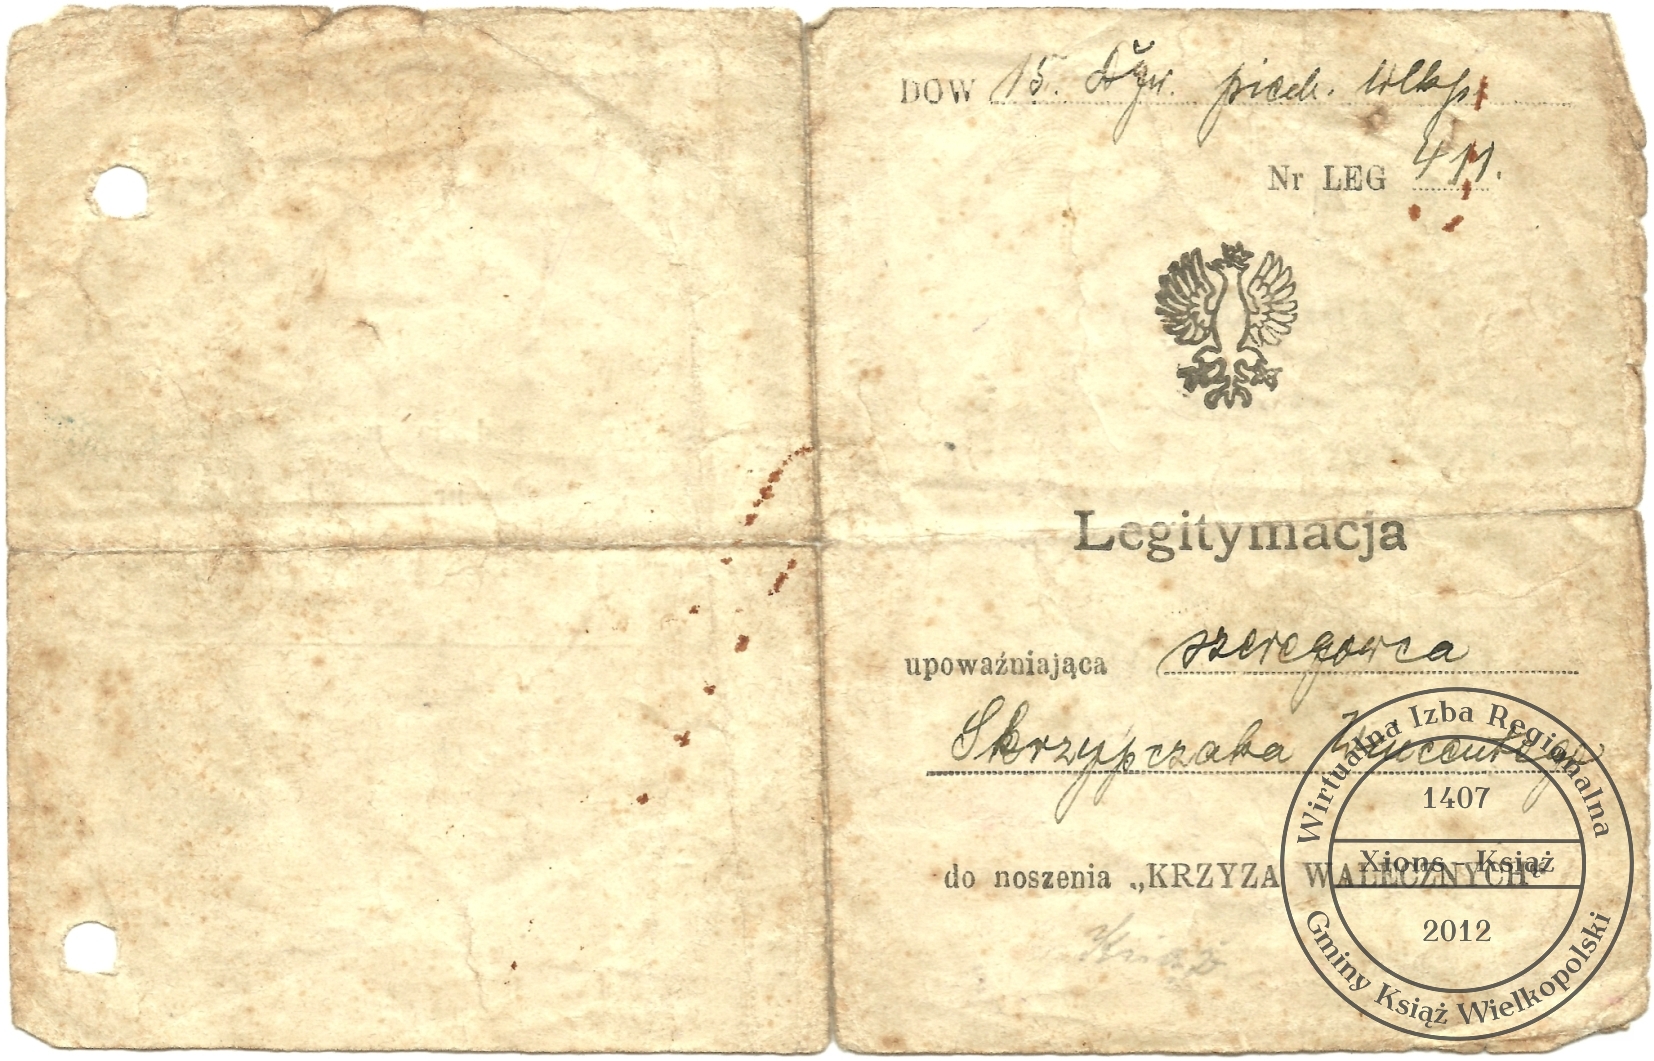 DOW 15. Dyw. piech. Wlkp.
Nr LEG 411.
Legitymacja
upoważniająca szeregowca
Skrzypczaka Wincentego
do noszenia „KRZYZA WALECZNYCH"
Książ
Wirtualna Izba Regionalna
1407
Xions - Książ
2012
Gminy Książ Wielkopolski